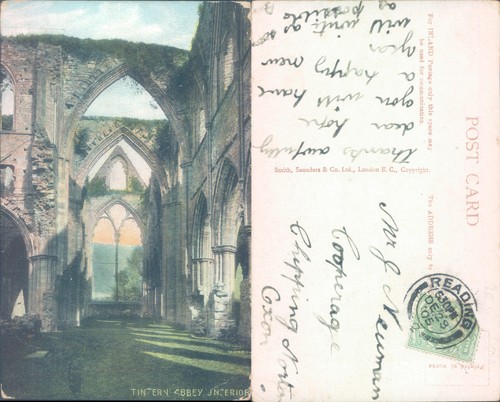 TINTERN ABBEY INTERIOR
POST CARD
For INLAND Postage only this space may
be used for communication
The ADDRESS only to
Smith, Saunders & Co. Ltd., London E.C., Copyright.
thanks awfully
dear hope
you will have
a happy new
year
will write
as soon
as possible
Mr J Newman
Cooperage
Chipping Norton
Oxon
READING
DE 29
05